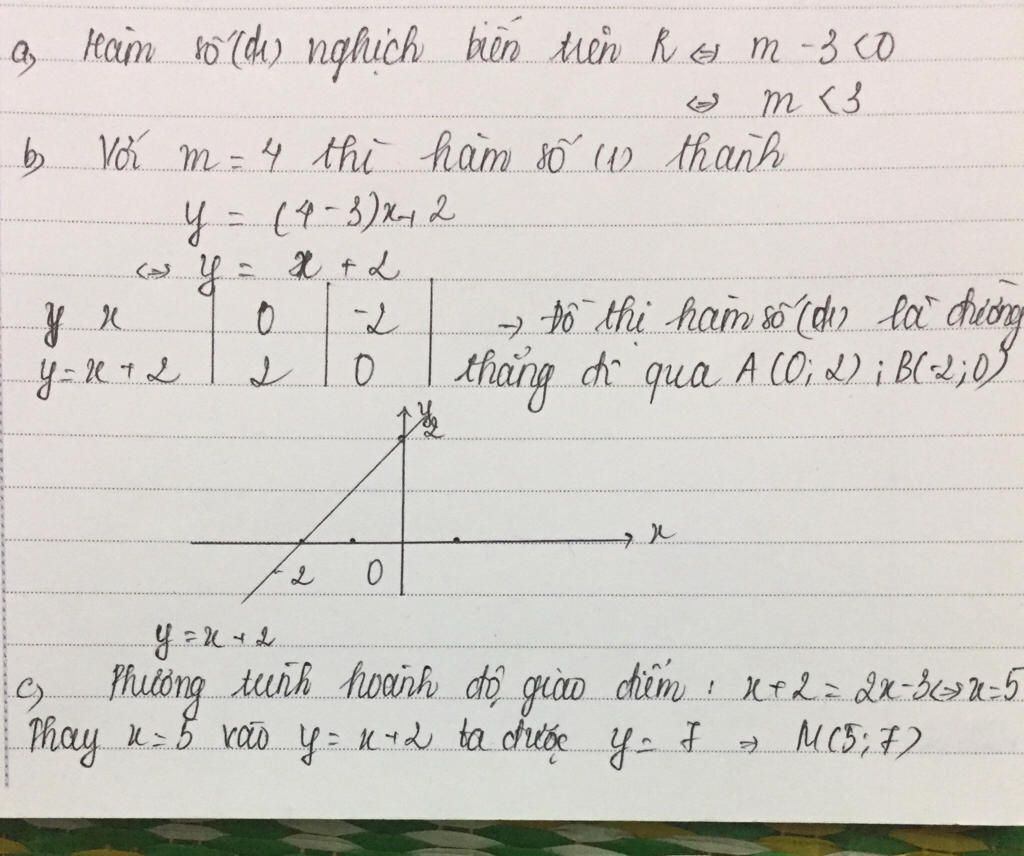 a, Hàm số (d1) nghịch biến trên R ⇔ m - 3 < 0
⇔ m < 3
b, Với m = 4 thì hàm số (1) thành
y = (4 - 3)x + 2
⇔ y = x + 2
y x | 0 | -2 | → Đồ thị hàm số (d1) là đường
y = x + 2 | 2 | 0 | thẳng đi qua A (0; 2) ; B(-2; 0)
y
2
x
-2 0
y = x + 2
c, Phương trình hoành độ giao điểm : x + 2 = 2x - 3 ⇔ x = 5
Thay x = 5 vào y = x + 2 ta được y = 7 ⇒ M(5; 7)